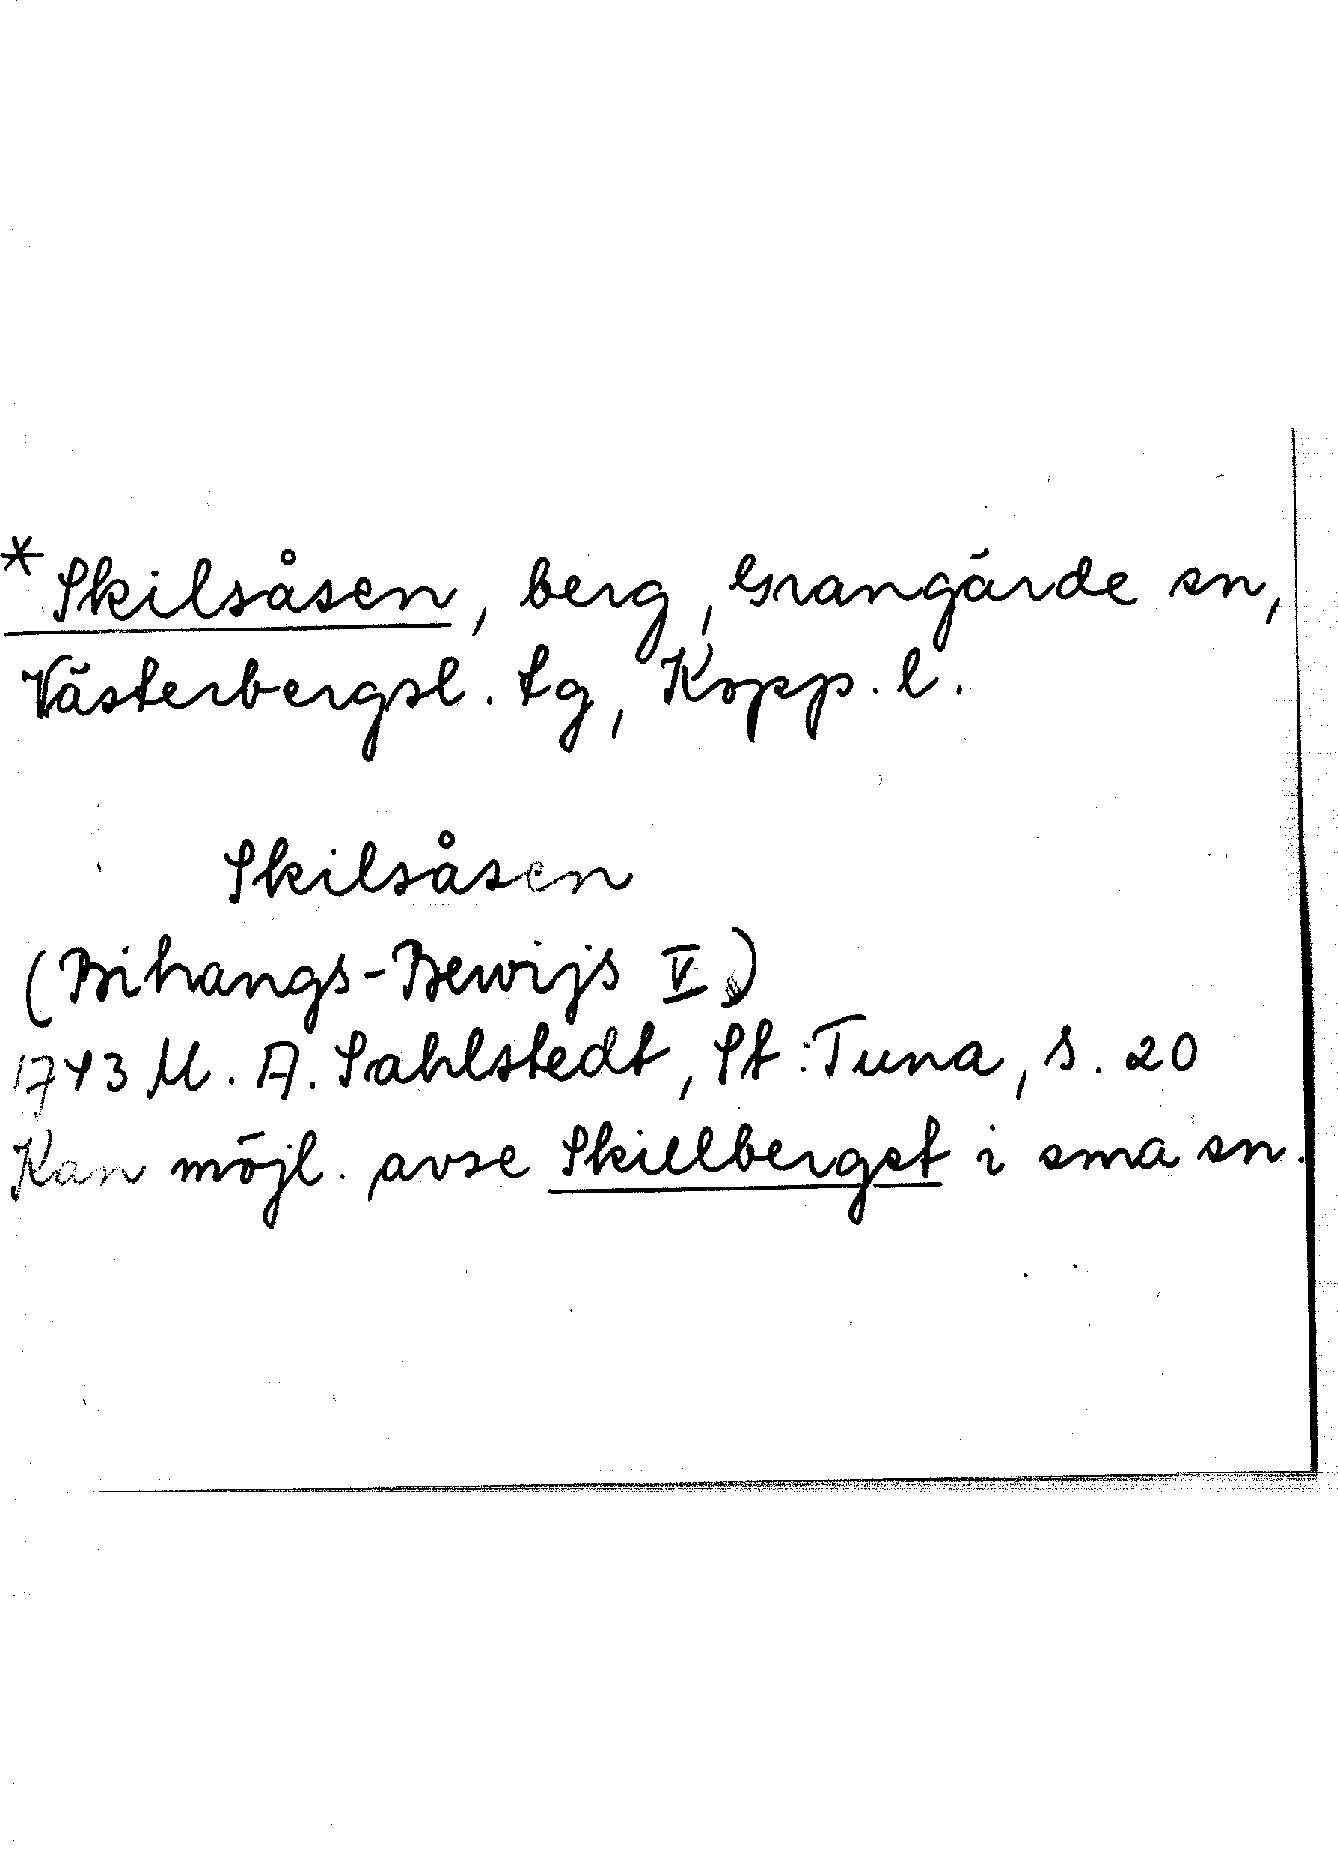 *Skilsåsen, berg, Grangärde sn,
Västerbergsl. tg, Kopp. l.
Skilsåsen
(Bihangs-Bewijs V)
1743 M. A. Sahlstedt, St. Tuna, s. 20
Kan möjl. avse Skillberget i sma sn.